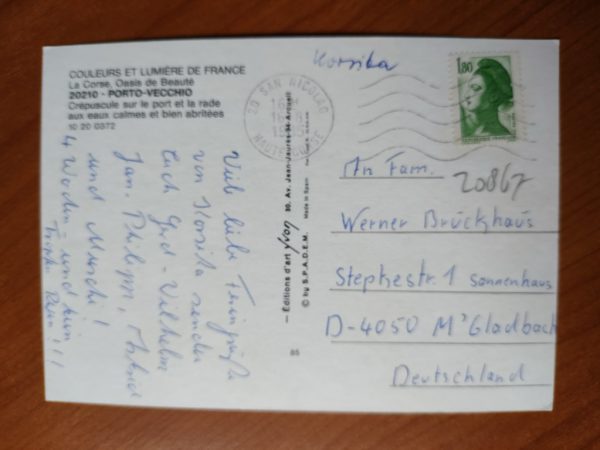 COULEURS ET LUMIÈRE DE FRANCE
La Corse, Oasis de Beauté
20210 - PORTO-VECCHIO
Crépuscule sur le port et la rade
aux eaux calmes et bien abritées
10 20 0372
Korsika
20 SAN NICOLAO
HAUTE CORSE
1,80
Viele liebe Feriengrüße
von Korsika senden
Euch Gerd - Wilhelm
Jan, Philipp, Astrid
und Muschi!
4 Wochen - und kein
Tropfen Regen!!!
— Éditions d'art yvon 30, Av. Jean-Jaurès 94-Arcueil
© by S.P.A.D.E.M. Made in Spain
85
An Fam.
20867
Werner Brückhaus
Stephestr. 1 Sonnenhaus
D-4050 M'Gladbach
Deutschland